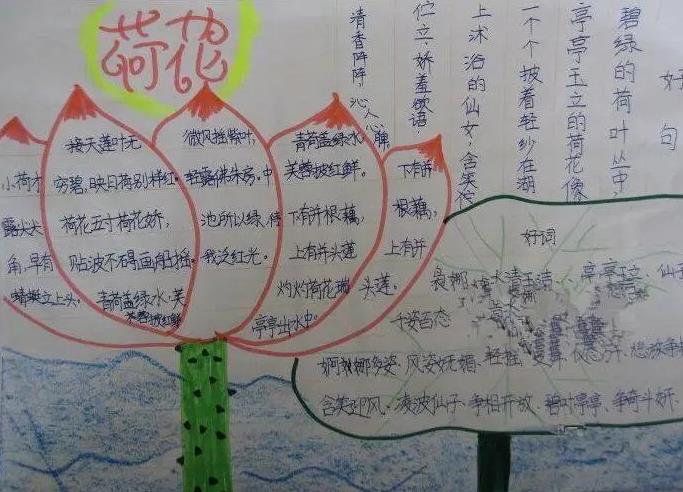 荷花
接天莲叶无
穷碧,映日荷别样红。
荷花五寸荷花娇,
贴波不碍画船摇。
小荷才
露尖尖
角,早有
蜻蜓立上头。
青荷盖绿水,芙
蓉披红鲜
微风摇紫叶,
轻露拂朱房。中
池所以绿,待
我泛红光。
青荷盖绿水
芙蓉披红鲜。
下有并根藕,
上有并头莲
灼灼荷花瑞
亭亭出水中。
下有并
根藕,
上有并
头莲。
好句
碧绿的荷叶丛中,
亭亭玉立的荷花像
一个个披着轻纱在湖
上沐浴的仙女,含笑
伫立,娇羞欲语,
清香阵阵,沁人心脾
好词
袅娜、冰清玉洁、亭亭玉立、仙子
千姿百态
婀娜多姿、风姿妩媚、轻盈、
含笑迎风、凌波仙子、争相开放、碧叶亭亭、争奇斗妍、